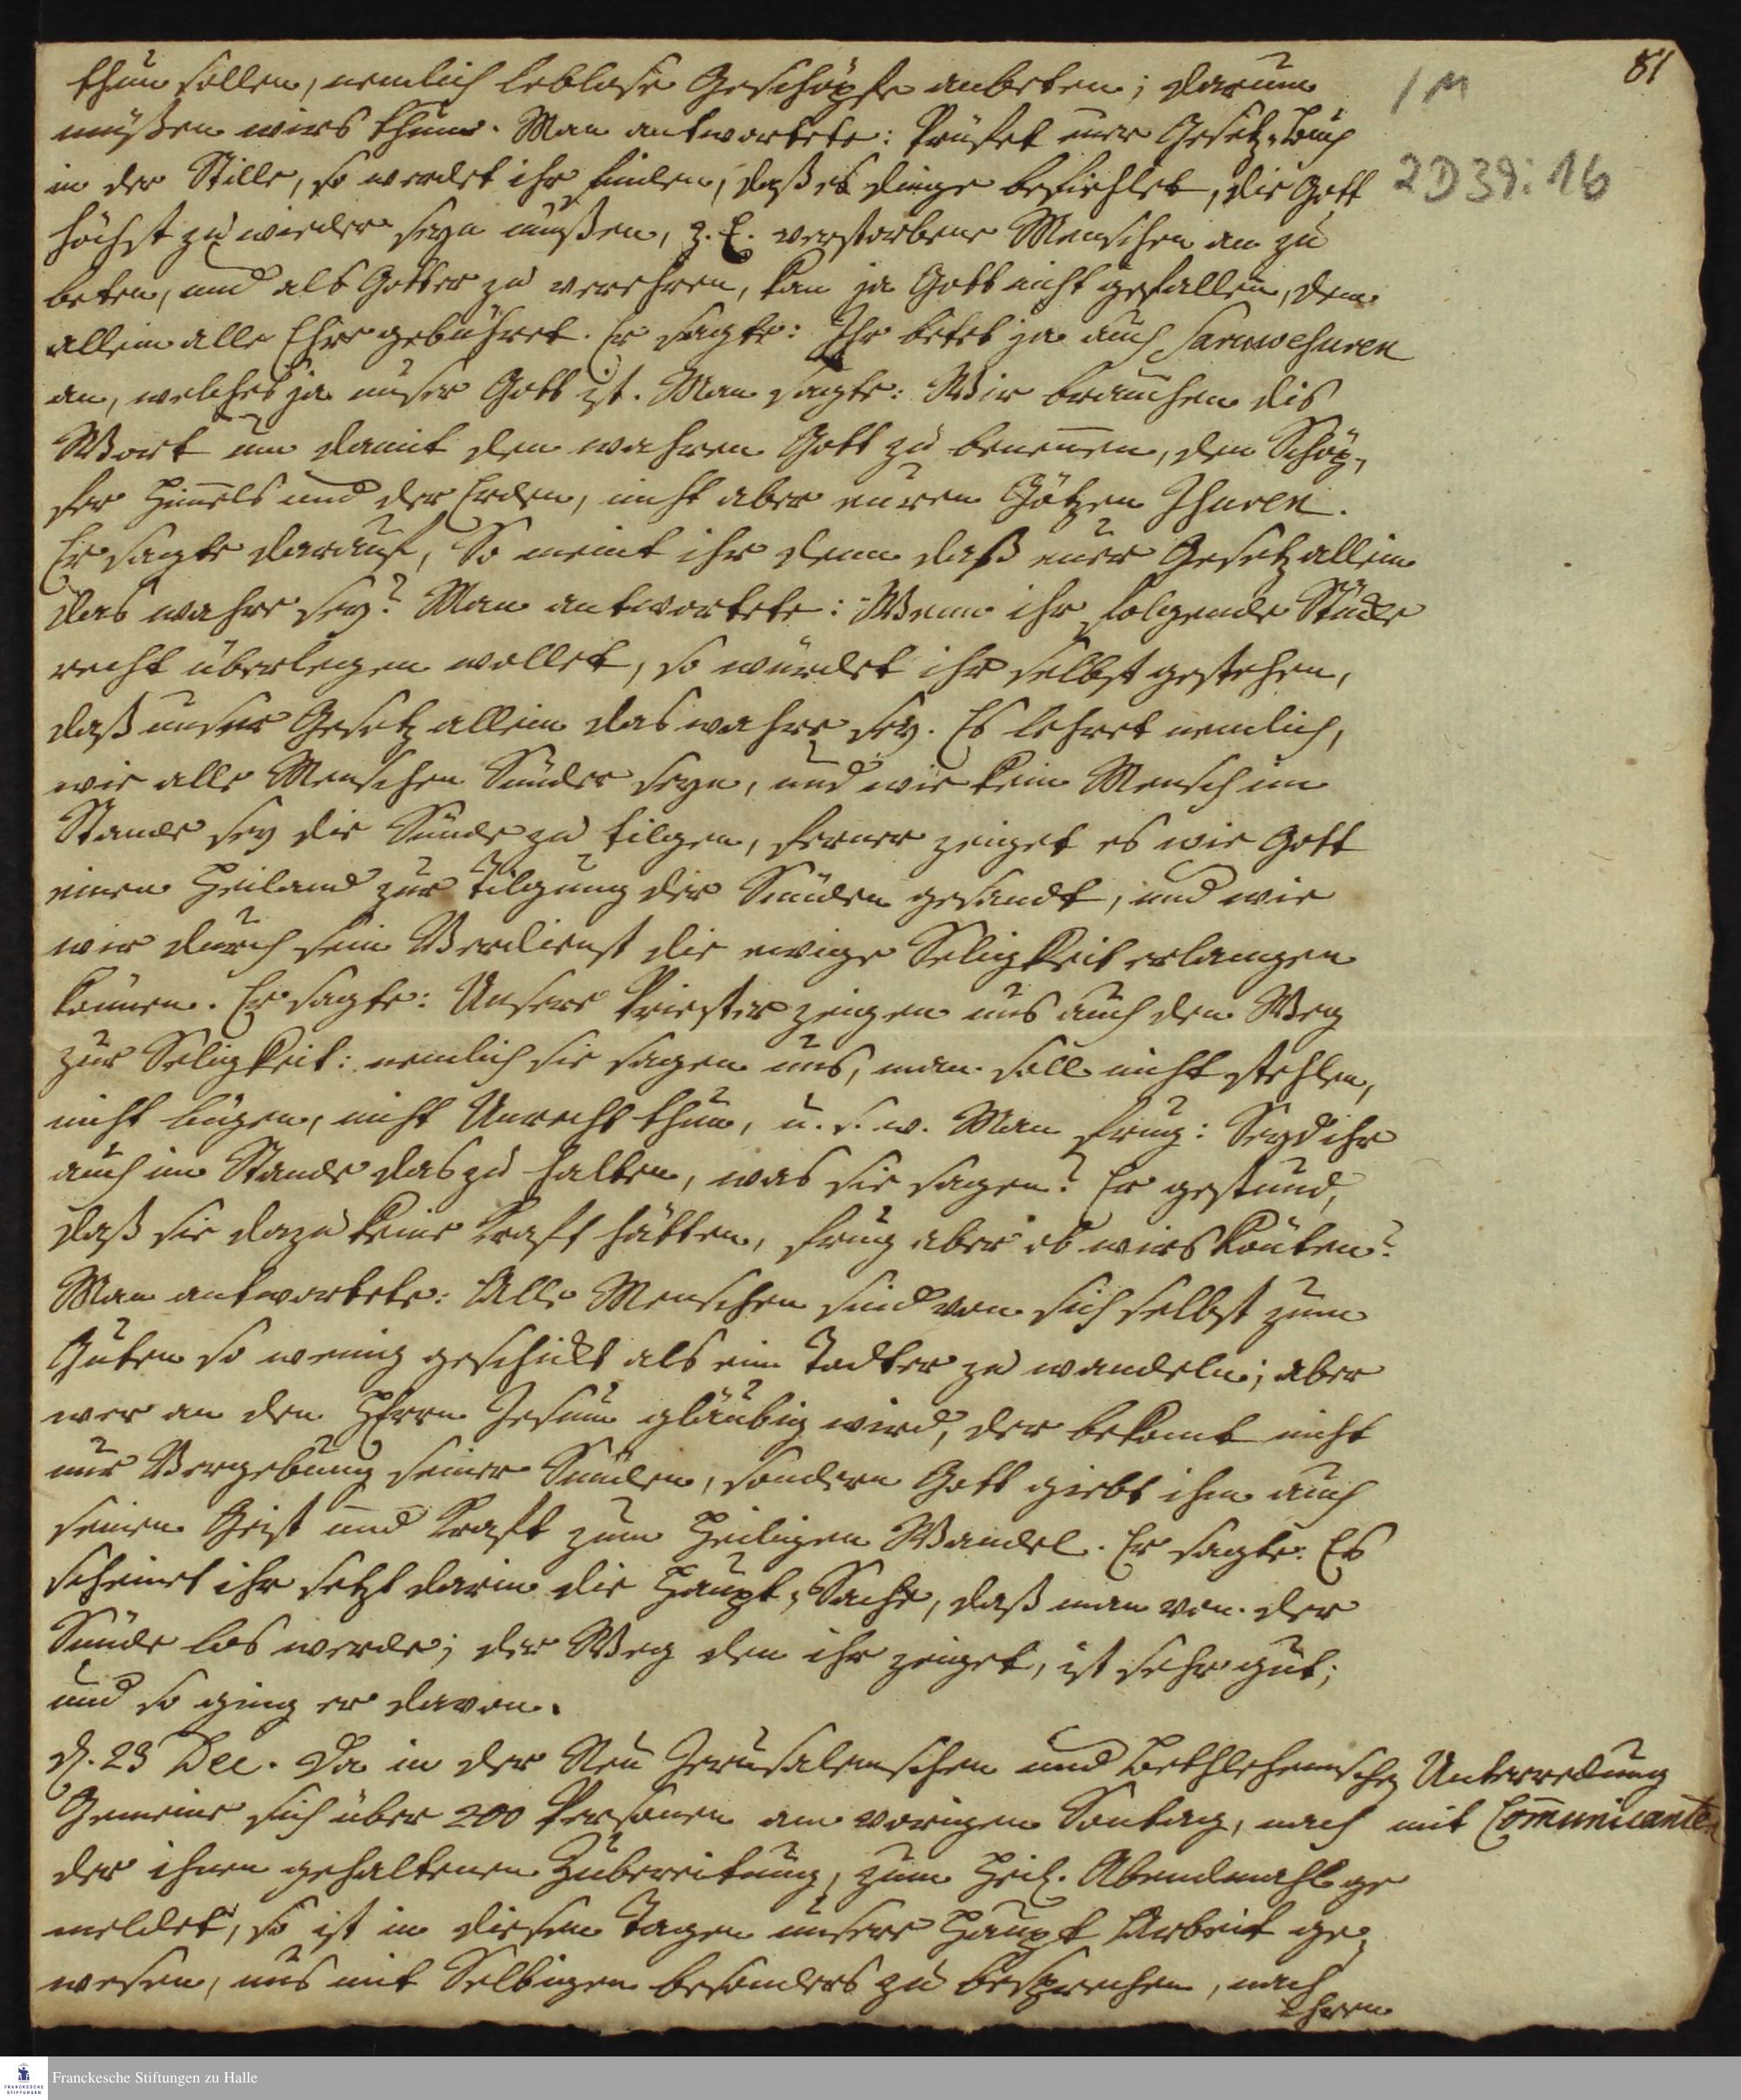 81
1 M
2 D 39: 16
thun sollen, nemlich leblose Geschöpfe anbeten; darum
müßen wirs thun. Man antwortete: Prüfet euer Gesetz-Buch
in der Stille, so werdet ihr finden, daß es dinge befiehlet, die Gott
höchst zu wieder seyn müßen, z. E. verstorbene Menschen an zu
beten, und als Götter zu verehren, kan ja Gott nicht gefallen, dem
allein alle Ehre gebühret. Er sagte: Ihr betet ja auch Saruwesuren
an, welches ja unser Gott ist. Man sagte: Wir brauchen dis
Wort um damit den wahren Gott zu benennen, den Schöp-
fer Himels und der Erden, nicht aber euren Götzen Isuren.
Er sagte darauf, So meint ihr denn daß euer Gesetz allein
das wahre sey? Man antwortete: Wenn ihr folgende Stücke
recht überlegen wollet, so würdet ihr selbst gestehen,
daß unser Gesetz allein das wahre sey. Es lehret nemlich,
wie alle Menschen Sünder seyn, und wie kein Mensch im
Stande sey die Sünde zu tilgen, ferner zeiget es wie Gott
einen Heiland zur Tilgung der Sünden gesandt, und wie
wir durch sein Verdienst die ewige Seligkeit erlangen
können. Er sagte: Unsere Priester zeigen uns auch den Weg
zur Seligkeit: nemlich sie sagen uns, man soll nicht stehlen,
nicht lügen, nicht Unrecht thun, u. s. w. Man frug: Seyd ihr
auch im Stande das zu halten, was sie sagen? Er gestund,
daß sie dazu keine Kraft hätten, frug aber ob wirs könten?
Man antwortete: Alle Menschen sind von sich selbst zum
Guten so wenig geschickt als ein Todter zu wandeln; aber
wer an den HErrn Jesum gläubig wird, der bekomt nicht
nur Vergebung seiner Sünden, sondern Gott giebt ihm auch
seinen Geist und Kraft zum Heiligen Wandel. Er sagte: Es
scheinet ihr setzt darin die Haupt-Sache, daß man von der
Sünde los werde; der Weg den ihr zeiget, ist sehr gut;
und so ging er davon.
d. 23 Dec. Da in der Neu Jerusalemschen und Bethlehemschen
Unterredung
Gemeine sich über 200 Personen am vorigen Sontag, nach
mit Communicanten
der ihnen gehaltenen Zubereitung, zum Heil. Abendmahl ge
meldet, so ist in diesen Tagen unsere Haupt Arbeit ge-
wesen, uns mit Selbigen besonders zu besprechen, nach
ihren
Franckesche Stiftungen zu Halle
FRANCKESCHE STIFTUNGEN